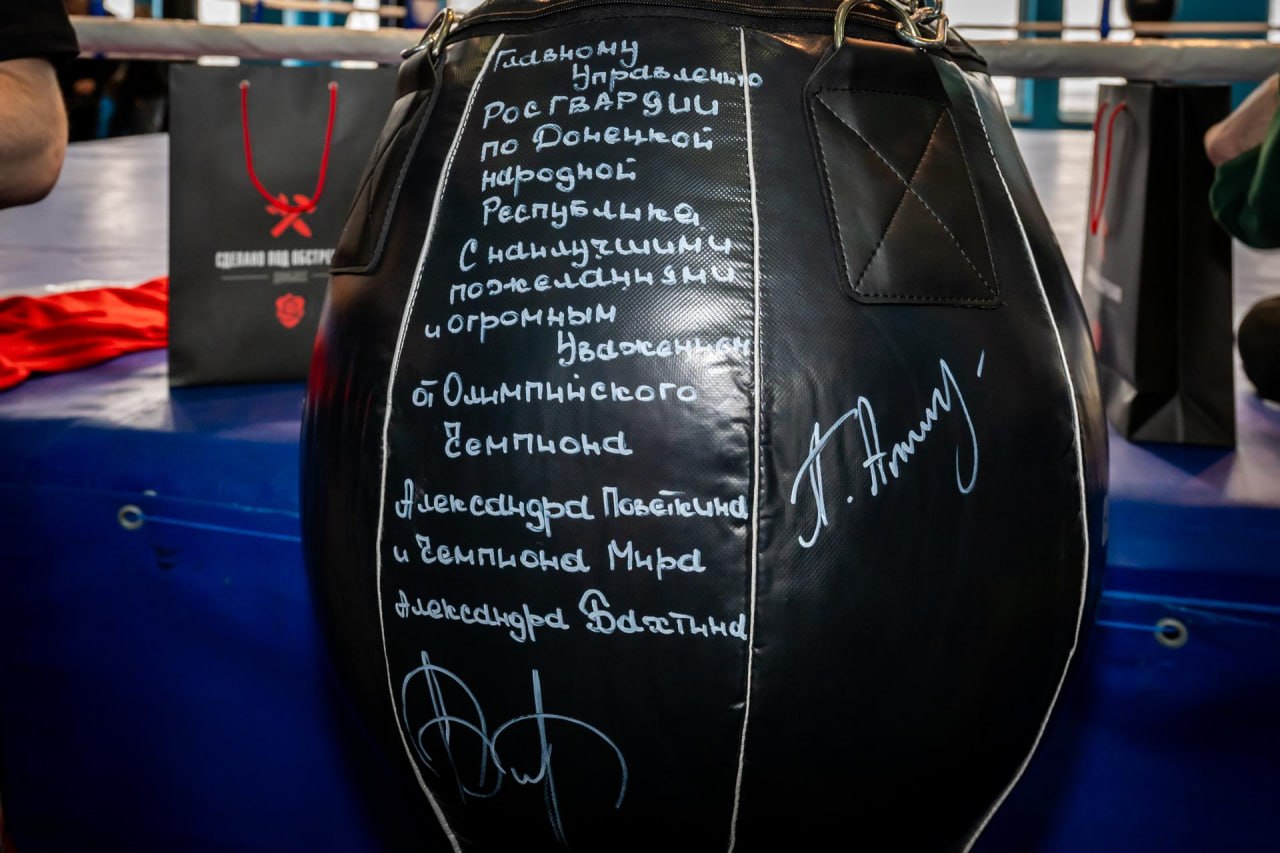 Главному
Управлению
РОСГВАРДИИ
по Донецкой
народной
Республике
С наилучшими
пожеланиями
и огромным
Уважением
от Олимпийского
Чемпиона
Александра Поветкина
и Чемпиона Мира
Александра Бахтина
СДЕЛАНО ПОД ОБСТРЕ